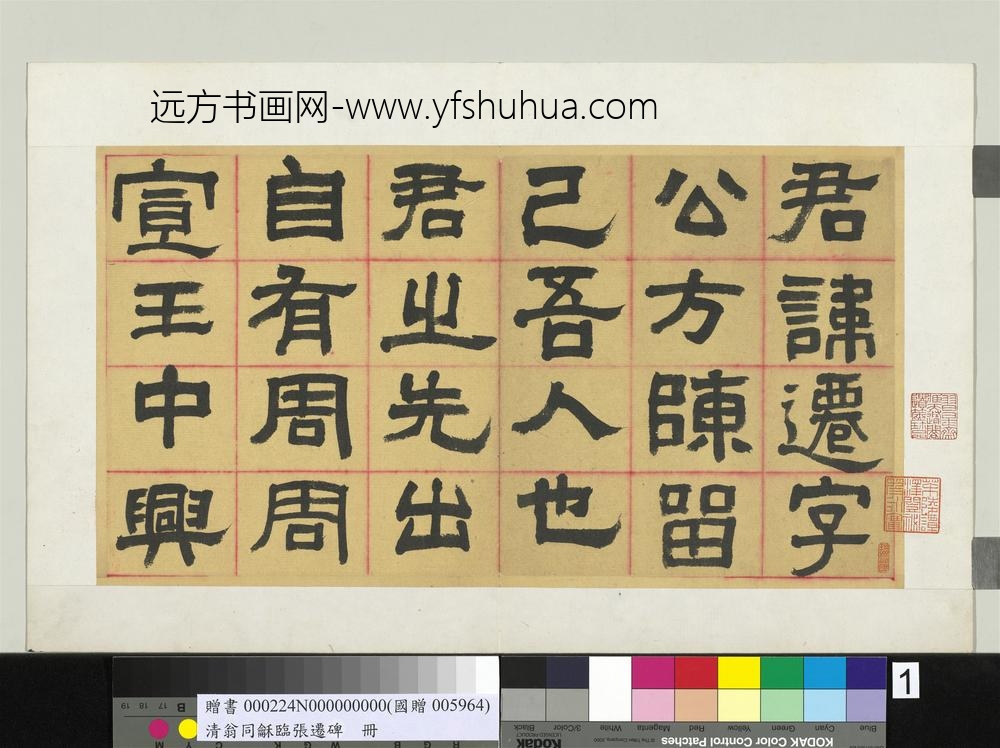 远方书画网-www.yfshuhua.com
君諱遷字
公方陳留
己吾人也
君之先出
自有周周
宣王中興
1
贈書 000224N000000000(國贈 005964)
清翁同龢臨張遷碑 冊
Kodak
KODAK Color Control Patches
Blue
Cyan
Green
Yellow
Red
Magenta
White
3/Color
Black
19
18
17
B
M